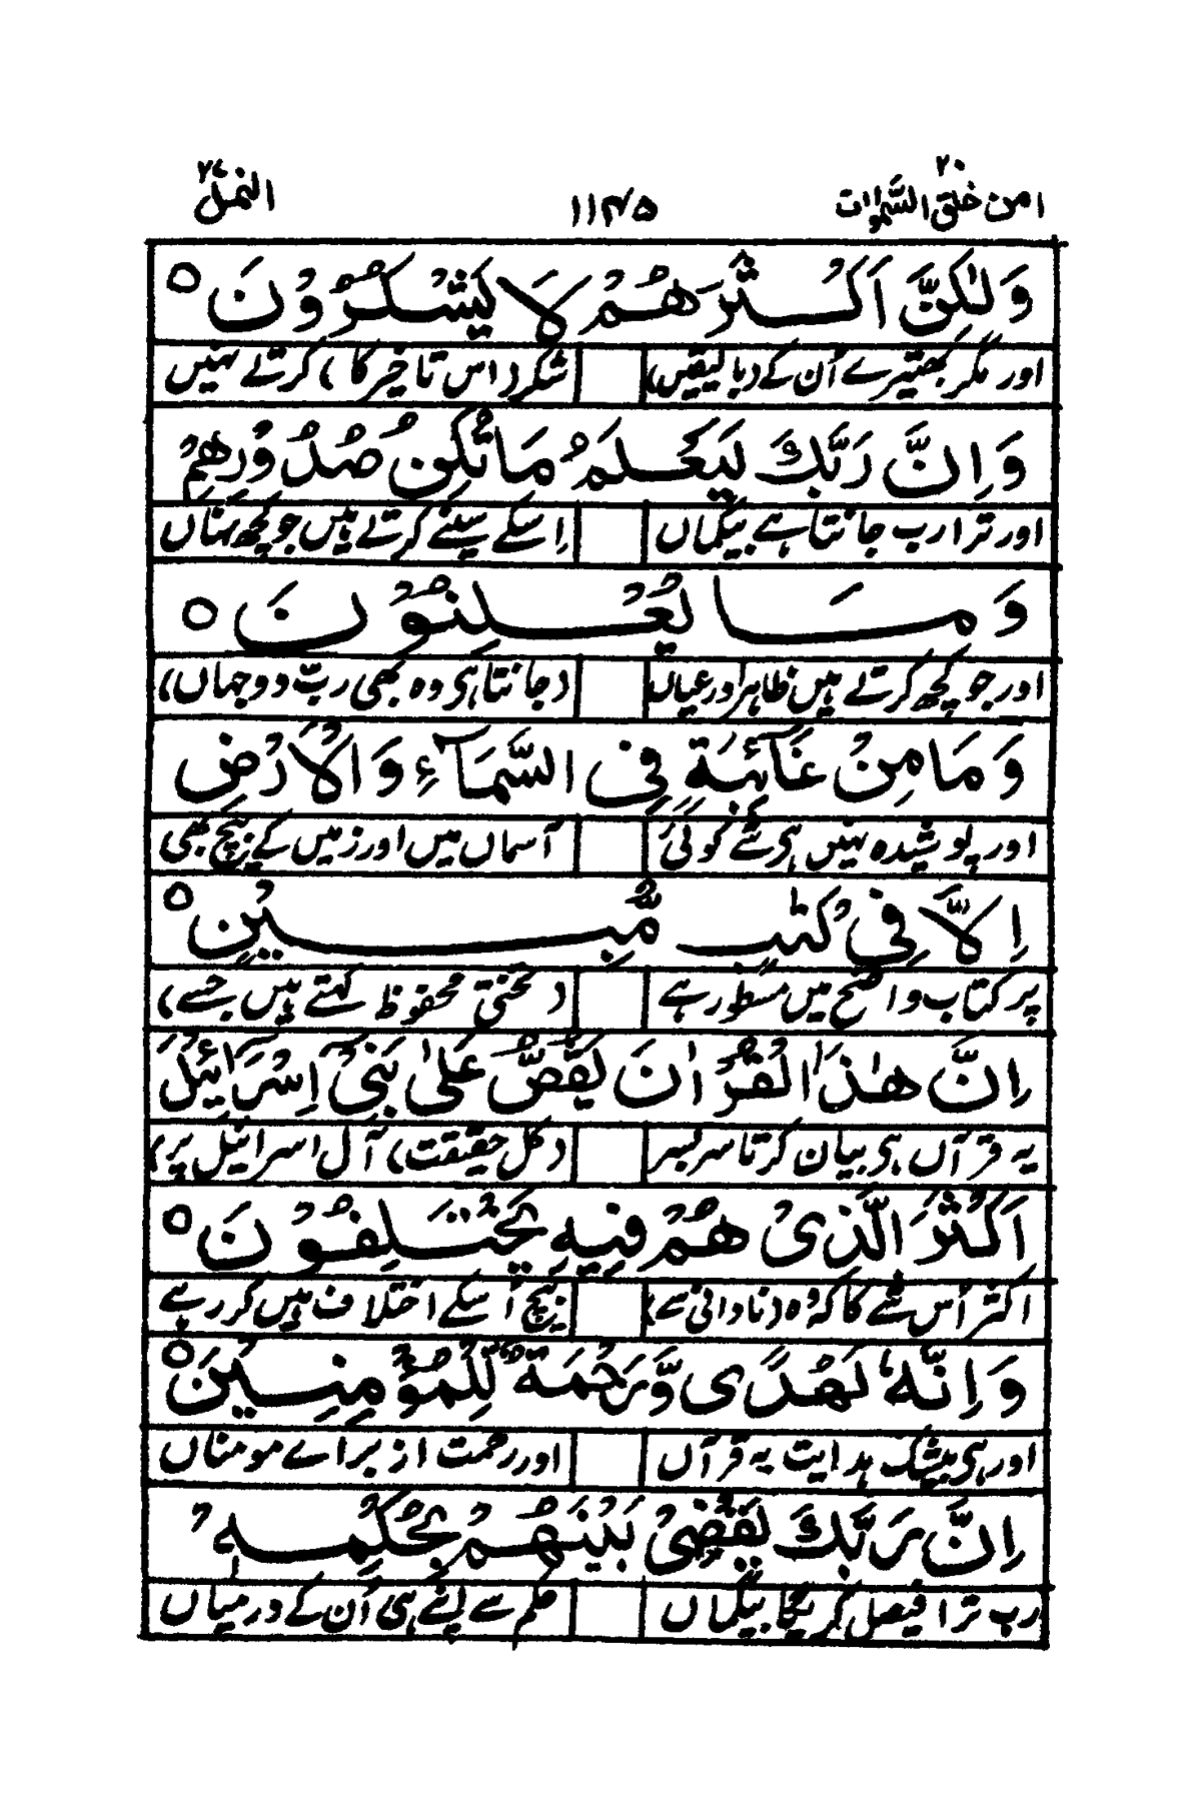 امن خلق السَّمٰوٰات ٢٠ ١١٣٥ النمل ٢٧
وَلٰكِنَّ اَكْثَرَهُمْ لَا يَشْكُرُوْنَ ○
اور مگر بہتیرے اُن کے (با یقیں) شکر (اس تاخیر کا) کرتے نہیں
وَاِنَّ رَبَّكَ لَيَعْلَمُ مَا تُكِنُّ صُدُوْرُهُمْ
اور ترا رب جانتا ہے بیگماں اِسکے سینے کرتے ہیں جو کچھ نہاں
وَمَا يُعْلِنُوْنَ ○
اور جو کچھ کرتے ہیں ظاہر اور عیاں (جانتا ہی وہ بھی ربّ دو جہاں)
وَمَا مِنْ غَآئِبَةٍ فِى السَّمَآءِ وَالْاَرْضِ
اور پوشیدہ نہیں ہی شے کوئی آسماں میں اور زمیں کے بیچ بھی
اِلَّا فِىْ كِتٰبٍ مُّبِيْنٍ ○
پر کتاب واضح میں مسطور ہے (تختیٔ محفوظ کہتے ہیں جسے)
اِنَّ هٰذَا الْقُرْاٰنَ يَقُصُّ عَلٰى بَنِىْٓ اِسْرَآئِيْلَ
یہ قرآں ہی بیان کرتا سربسر (کل حقیقت) آل اسرائیل پر)
اَكْثَرَ الَّذِىْ هُمْ فِيْهِ يَخْتَلِفُوْنَ ○
اکثر اُس شے کا کہ وہ (نادانی سے) بیچ اُسکے اختلاف ہیں کر رہے
وَاِنَّهٗ لَهُدًى وَّرَحْمَةٌ لِّلْمُؤْمِنِيْنَ ○
اور ہی بیشک ہدایت یہ قرآں اور رحمت از براے مومناں
اِنَّ رَبَّكَ يَقْضِىْ بَيْنَهُمْ بِحُكْمِهٖ ۚ
رب ترا فیصل کریگا بیگماں حکم سے اپنے ہی اُن کے درمیاں